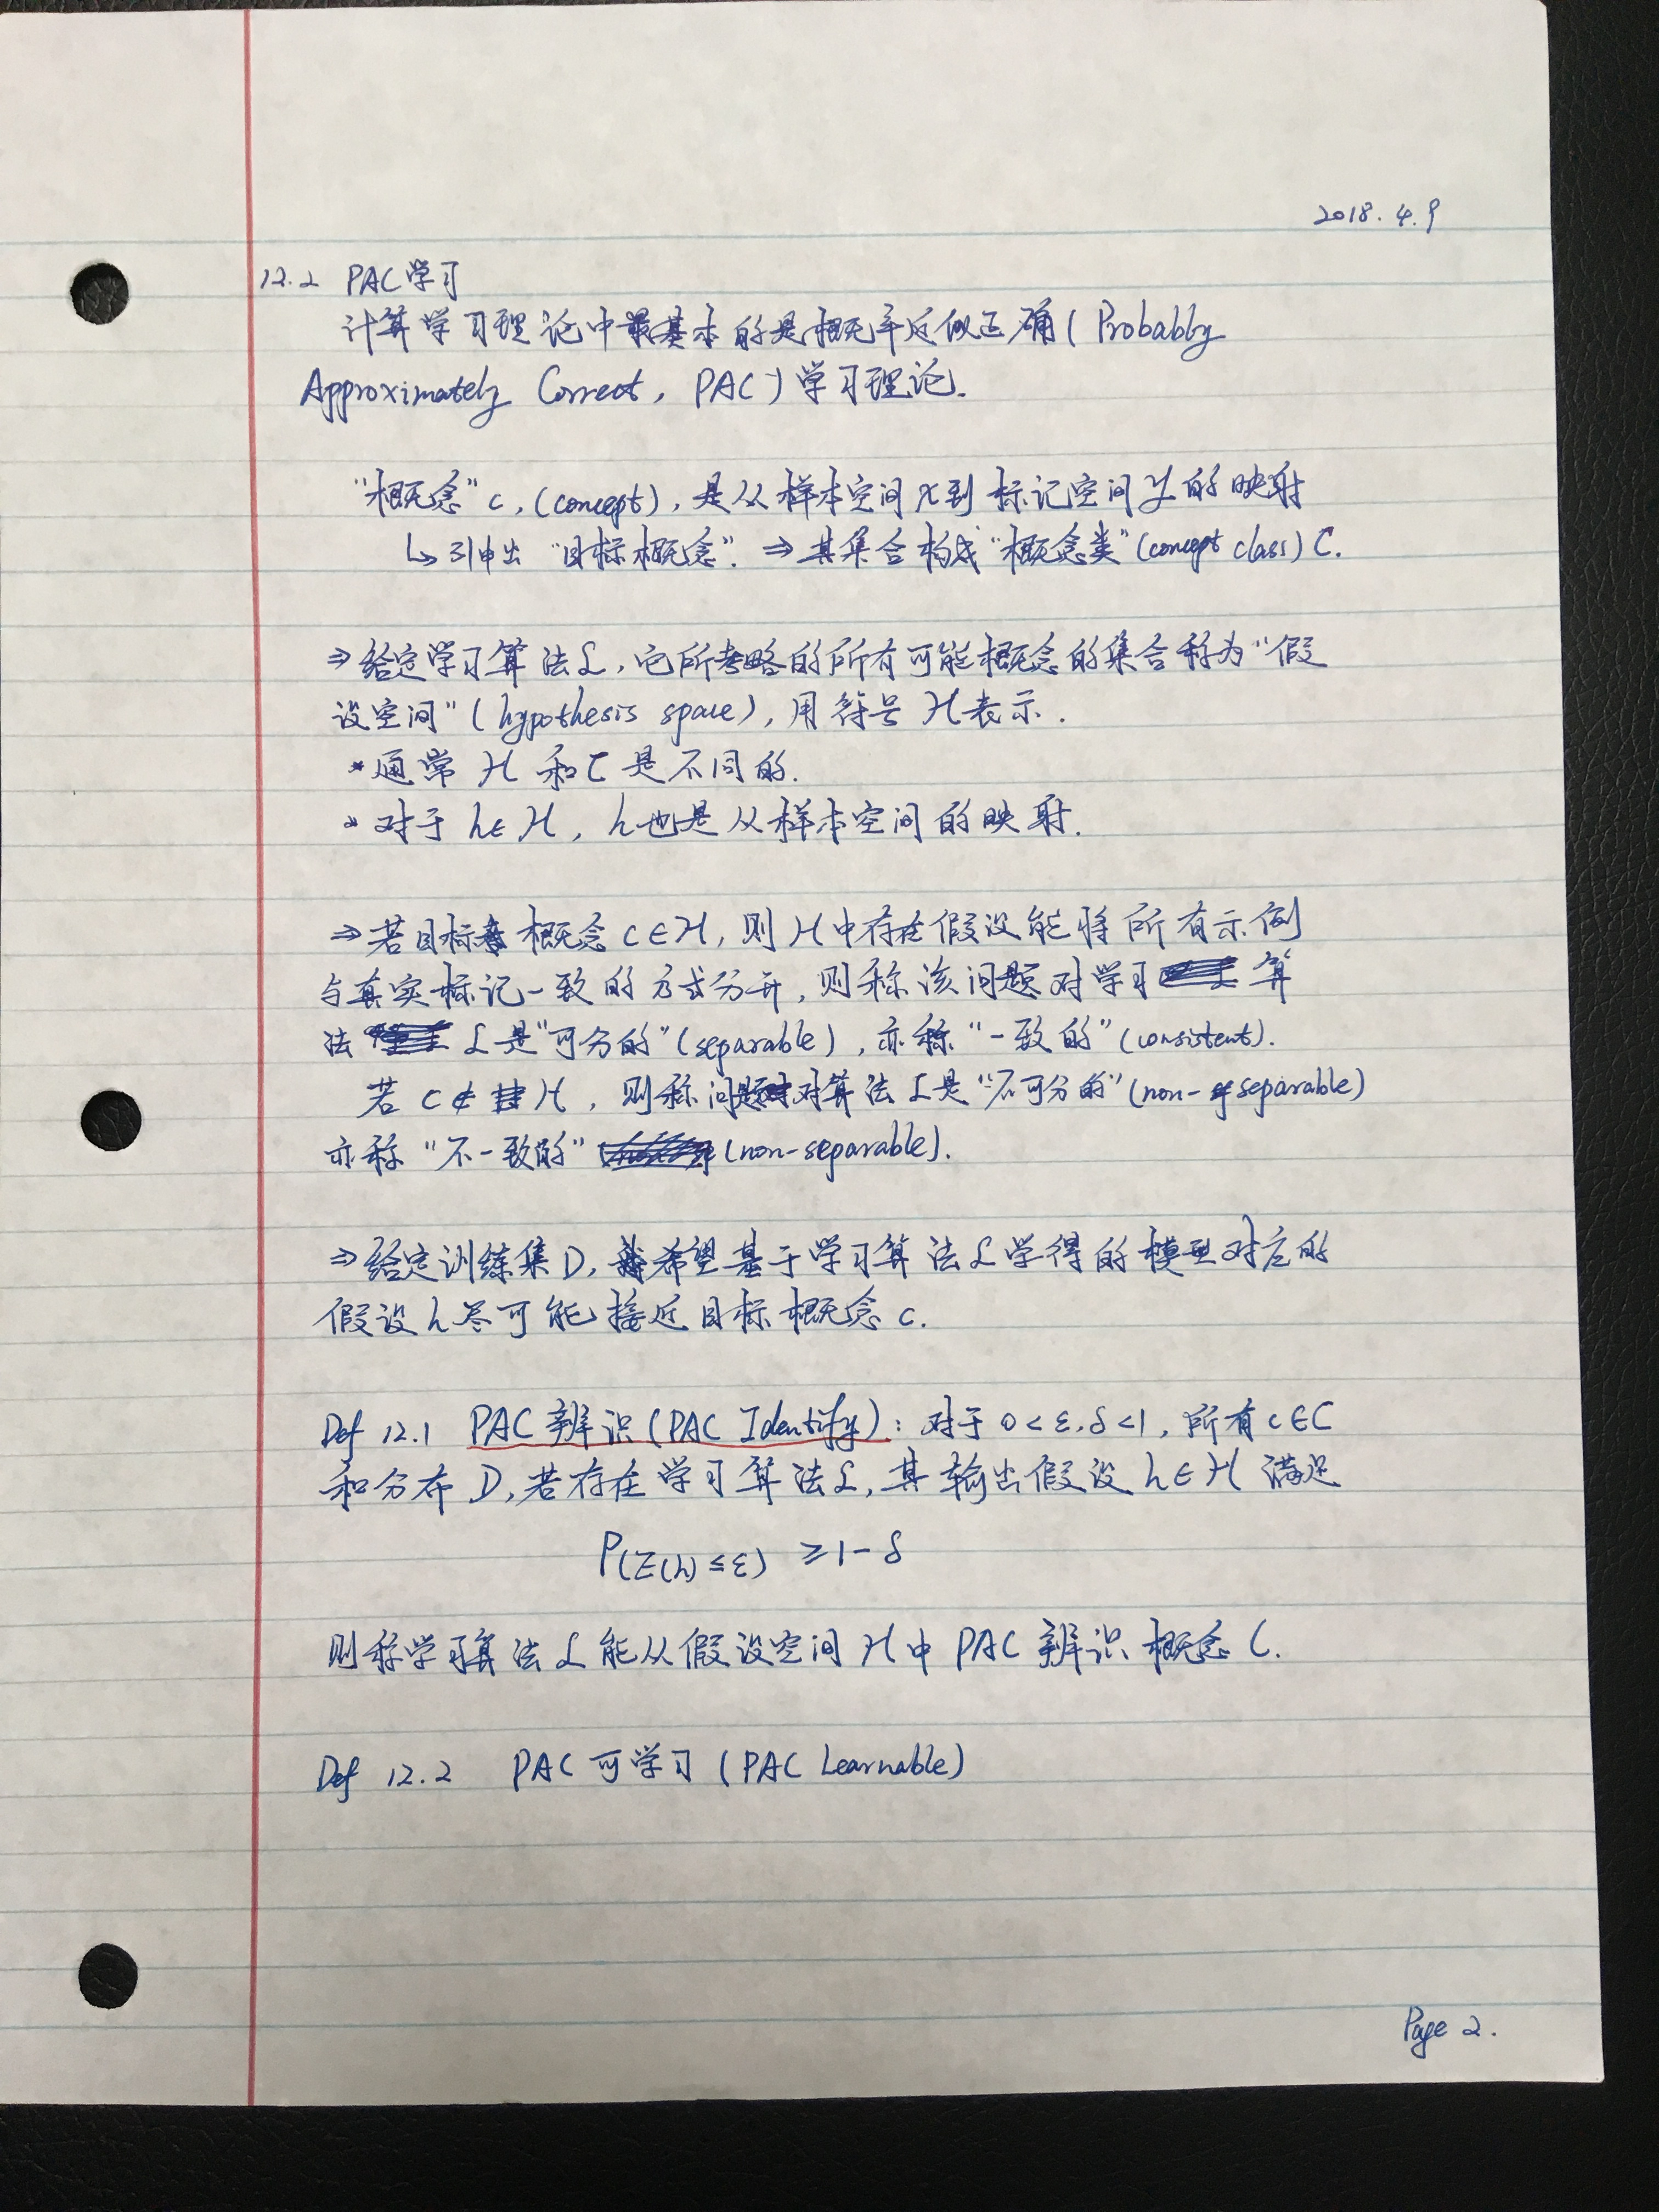 2018.4.9
12.2 PAC学习
计算学习理论中最基本的是概率近似正确(Probably
Approximately Correct, PAC)学习理论.
"概念"c,(concept),是从样本空间X到标记空间Y的映射
↳引申出"目标概念".⇒其集合构成"概念类"(concept class)C.
⇒给定学习算法L,它所考略的所有可能概念的集合称为"假
设空间"(hypothesis space),用符号H表示.
*通常H和C是不同的.
*对于h∈H,h也是从样本空间的映射.
⇒若目标概念c∈H,则H中存在假设能将所有示例
与真实标记一致的方式分开,则称该问题对学习算
法L是"可分的"(separable),亦称"一致的"(consistent).
若c∉H,则称问题对算法L是"不可分的"(non-separable)
亦称"不一致的"(non-separable).
⇒给定训练集D,希望基于学习算法L学得的模型对应的
假设h尽可能接近目标概念c.
Def 12.1 PAC辨识(PAC Identify):对于0<ε,δ<1,所有c∈C
和分布D,若存在学习算法L,其输出假设h∈H满足
P(E(h)≤ε) ≥1-δ
则称学习算法L能从假设空间H中PAC辨识概念C.
Def 12.2 PAC可学习(PAC Learnable)
Page 2.